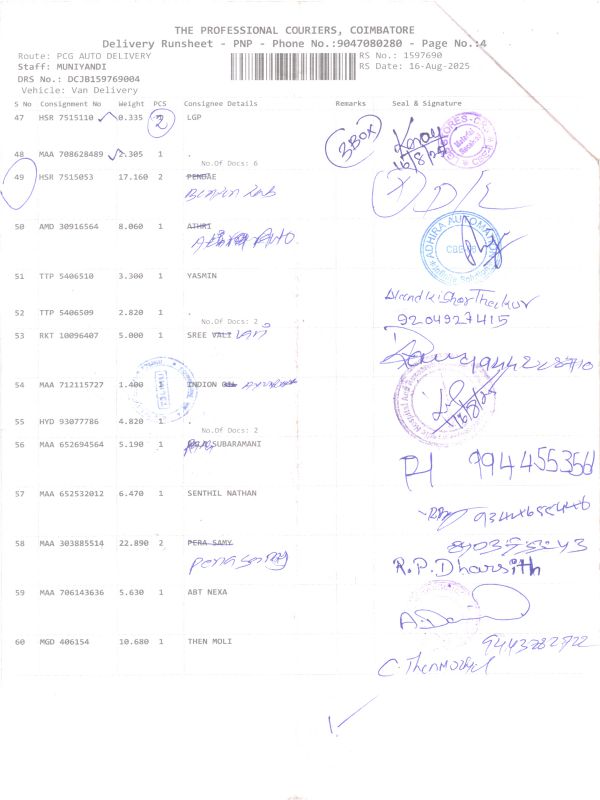 THE PROFESSIONAL COURIERS, COIMBATORE
Delivery Runsheet - PNP - Phone No.:9047080280 - Page No.:4
Route: PCG AUTO DELIVERY RS No.: 1597690
Staff: MUNIYANDI RS Date: 16-Aug-2025
DRS No.: DCJB159769004
Vehicle: Van Delivery
S No Consignment No Weight PCS Consignee Details Remarks Seal & Signature
47 HSR 7515110 0.335 2 LGP 3BOX
16/8/25
48 MAA 708628489 2.305 1 .
No.Of Docs: 6
49 HSR 7515053 17.160 2 PENDAE
50 AMD 30916564 8.060 1 ATHRI
ADHIRA AUTOMATION
51 TTP 5406510 3.300 1 YASMIN
Nandkishor Thakur
52 TTP 5406509 2.820 1 .
9204927415
No.Of Docs: 2
53 RKT 10096407 5.000 1 SREE VALI
9944228710
54 MAA 712115727 1.400 1 INDION
16/8/25
55 HYD 93077786 4.820 1 .
No.Of Docs: 2
56 MAA 652694564 5.190 1 SUBARAMANI
57 MAA 652532012 6.470 1 SENTHIL NATHAN
58 MAA 303885514 22.890 2 PERA SAMY
Peria Samy
R.P.Dharsith
59 MAA 706143636 5.630 1 ABT NEXA
60 MGD 406154 10.680 1 THEN MOLI
9443282722
C. Thenmozhi